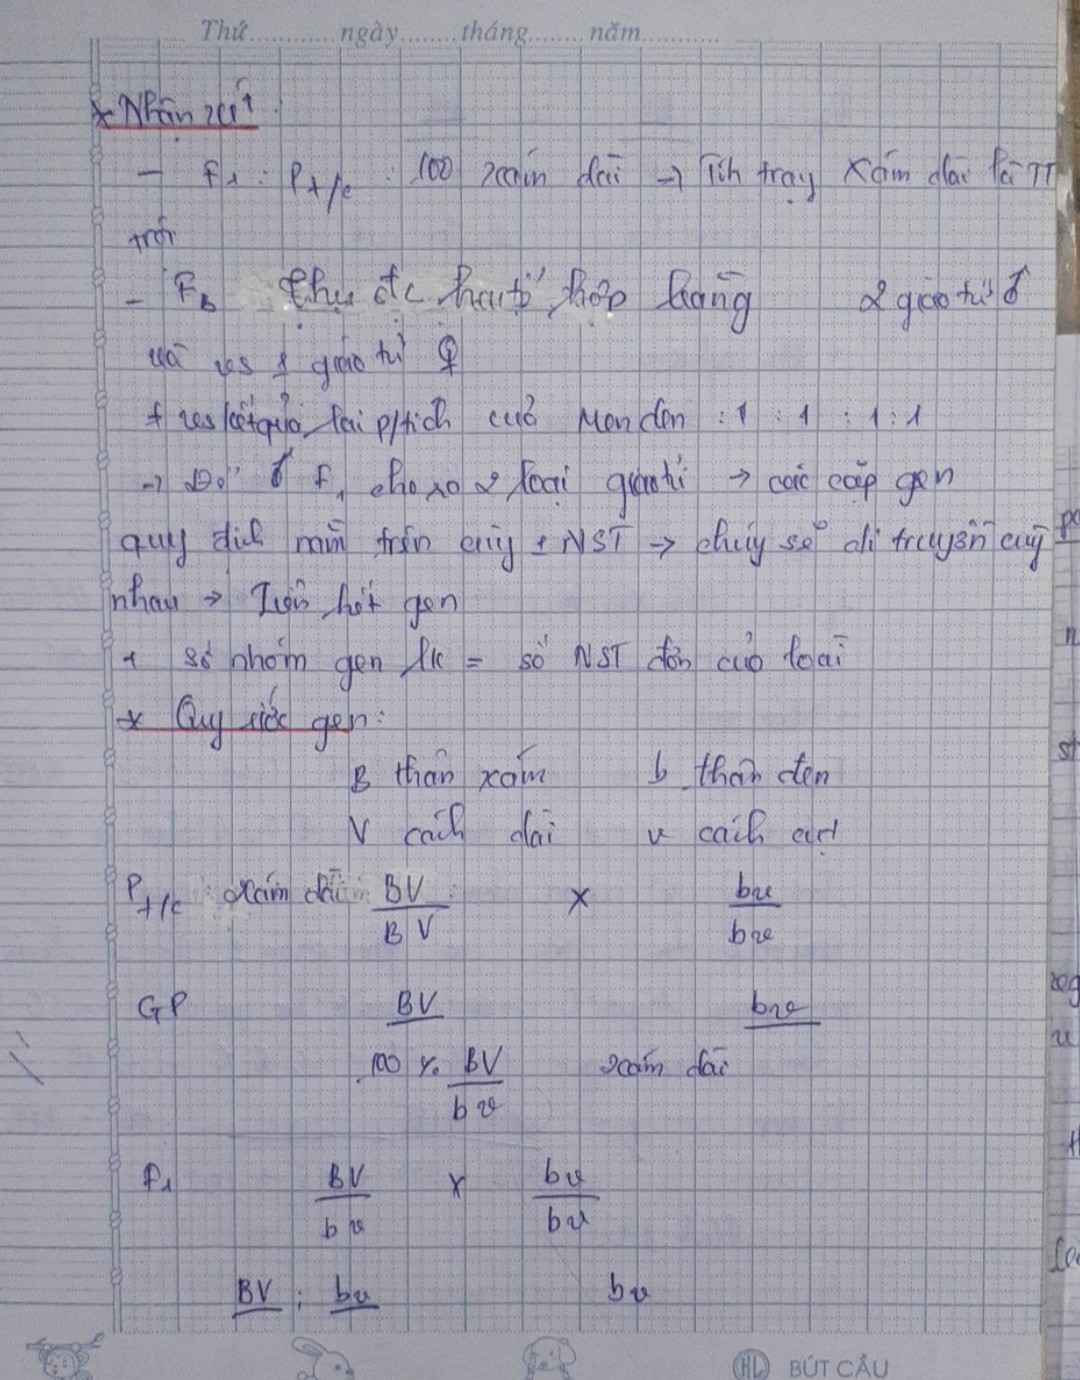 Thứ............ngày........tháng........năm............
* Nhận xét
- F1 : Pt/c : 100 xám dài → Tính trạng xám dài là TT
trội
- FB thu đc hai tổ hợp bằng 2 giao tử ♂
và vs 1 giao tử ♀
+ vs kết quả lai p/tích của Menđen : 1 : 1 : 1 : 1
→ Do ♂ F1 cho ra 2 loại giao tử → các cặp gen
quy định nằm trên cùng 1 NST → chúng sẽ di truyền cùng
nhau → Liên kết gen
+ số nhóm gen lk = số NST đơn của loài
* Quy ước gen:
B thân xám b thân đen
V cánh dài v cánh cụt
Pt/c : Xám dài BV/BV x bv/bv
GP BV bv
100 % BV/bv xám dài
F1 BV/bv x bv/bv
BV ; bv bv
HL BÚT CẦU